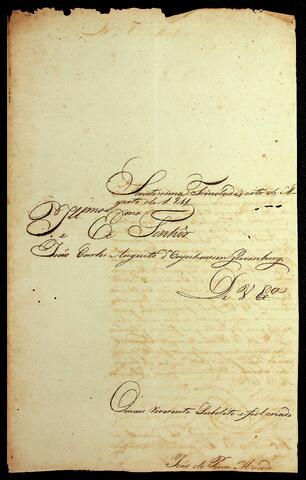 Santissima Trindade, oito de A
gosto de 1821
Illmo e Exmo Senhor
João Carlos Augusto d'Oeynhausen Grevenburg
De V. Exa
O mais reverente Subdito e fiel criado
João de